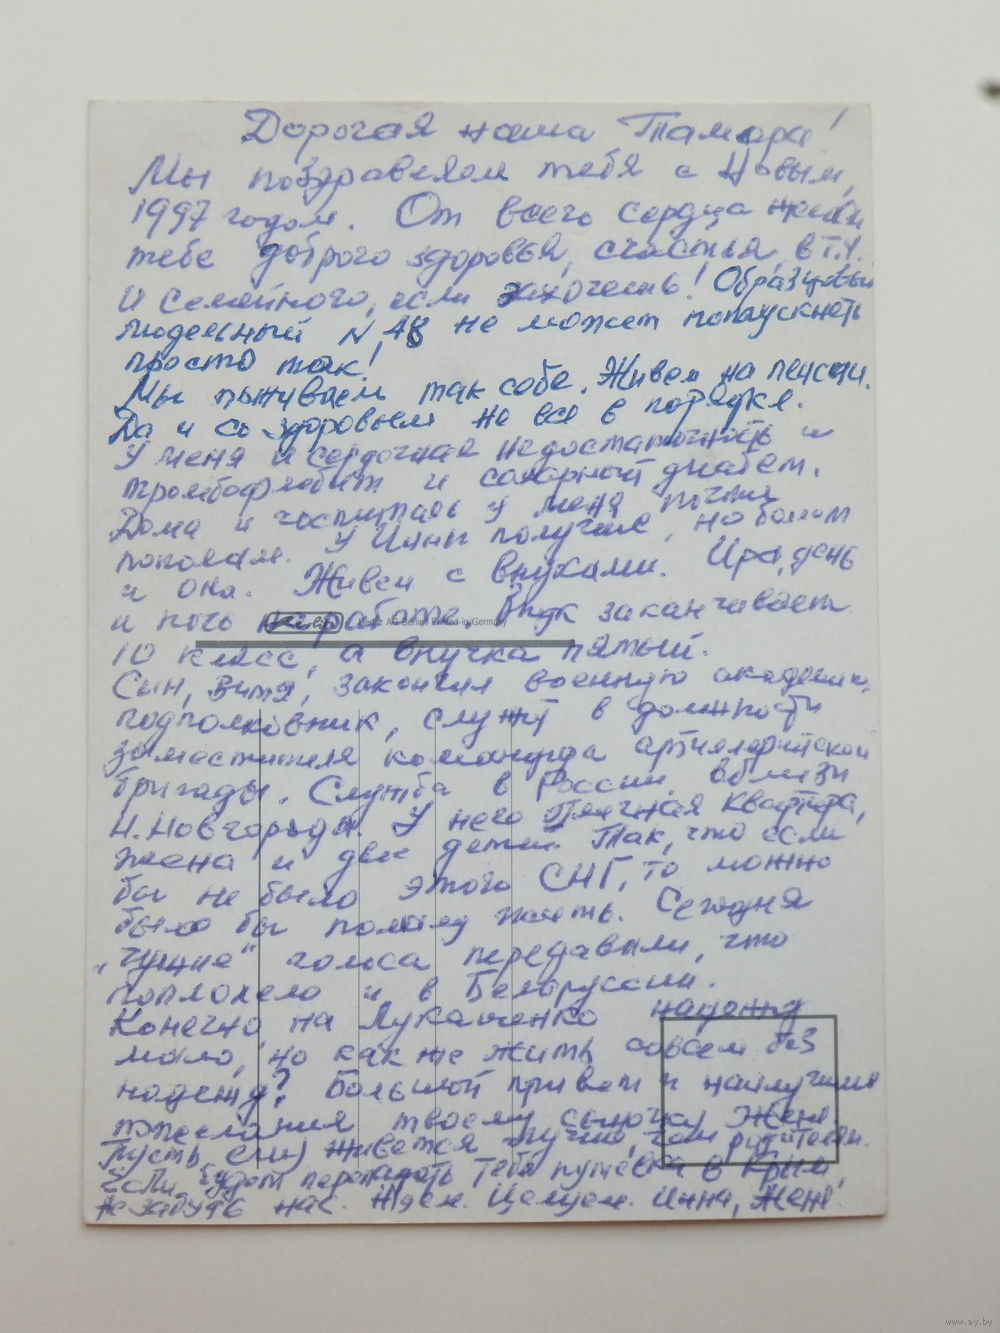 Дорогая наша Тамара!
Мы поздравляем тебя с Новым,
1997 годом. От всего сердца желаем
тебе доброго здоровья, счастья, в т.ч.
и семейного, если захочешь! Образцовый
модельный N 48 не может попускнеть
просто так!
Мы поживаем так себе. Живем на пенсии.
Да и со здоровьем не все в порядке.
У меня и сердечная недостаточность и
тромбофлебит и сахарный диабет.
Дома и госпиталь у меня почти
пополам. У Инны получше, но болеет
и она. Живем с внуками. Ира, день
и ночь на работе. Внук заканчивает
10 класс, а внучка пятый.
Сын, Витя, закончил военную академию,
подполковник, служит в должности
заместителя командира артиллерийской
бригады. Служба в России вблизи
Н.Новгорода. У него отличная квартира,
жена и двое детей. Так, что если
бы не было этого СНГ, то можно
было бы жить. Сегодня
голоса передавали, что
потеплело и в Белоруссии.
Конечно, на Лукашенко надежд
мало, но как же жить совсем без
надежд? Большой привет и наилучшие
пожелания твоему сыночку Жене.
Пусть ему живется лучше, чем родителям.
Если будет перепадать тебе путевка в Крым,
не забудь нас. Ждем. Целуем. Инна, Женя.
Printed in Germany
www.ay.by